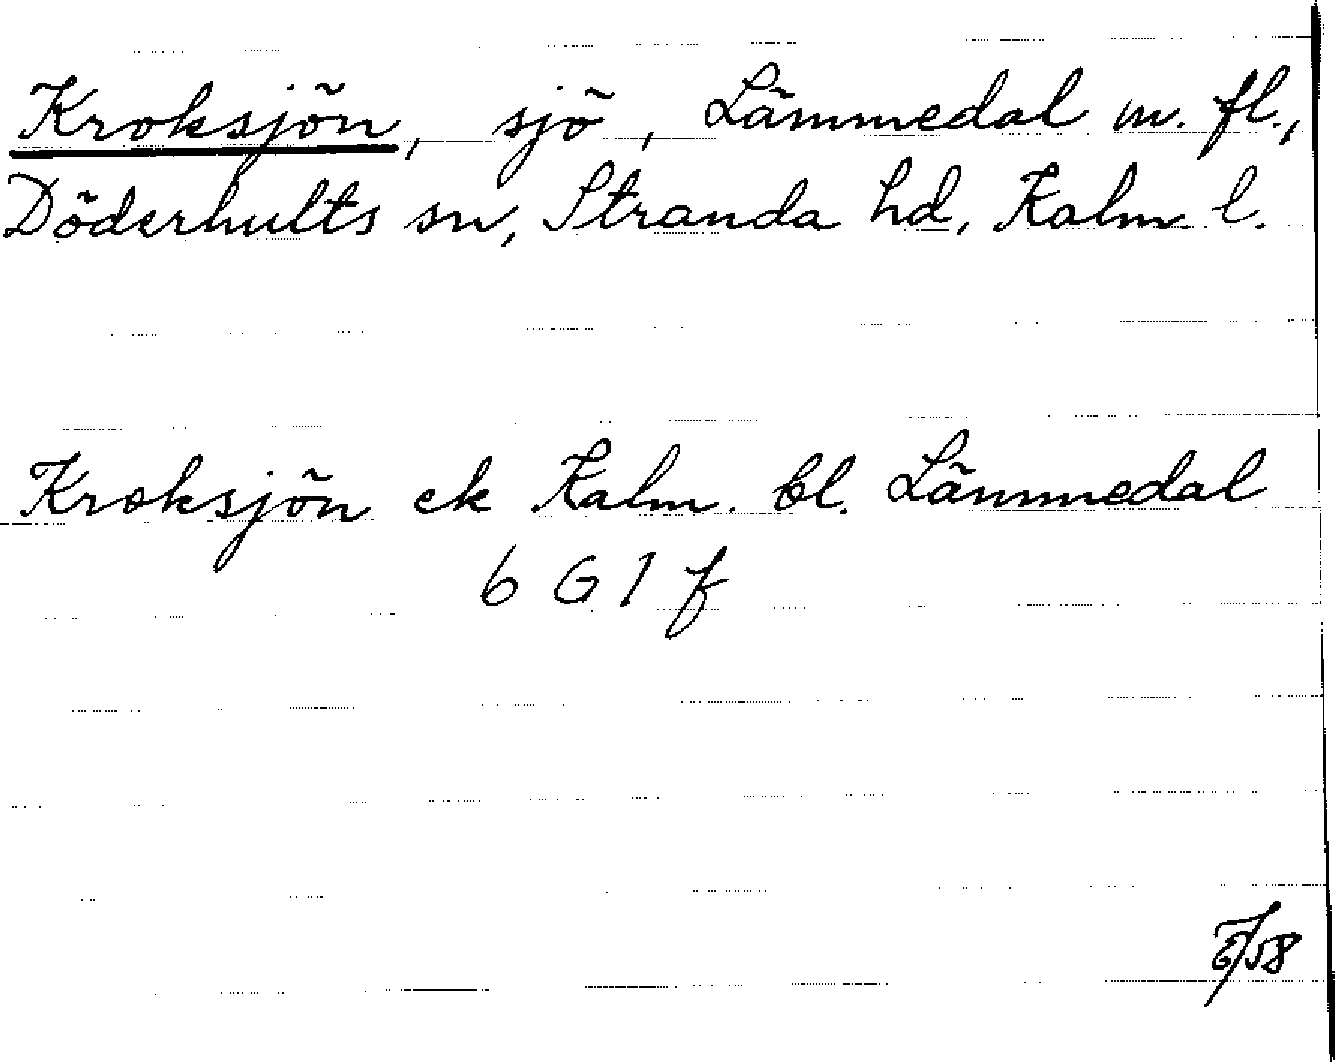 Kroksjön, sjö, Lämmedal m. fl.,
Döderhults sn, Stranda hd, Kalm. l.
Kroksjön ek Kalm. bl. Lämmedal
6 G 1 f